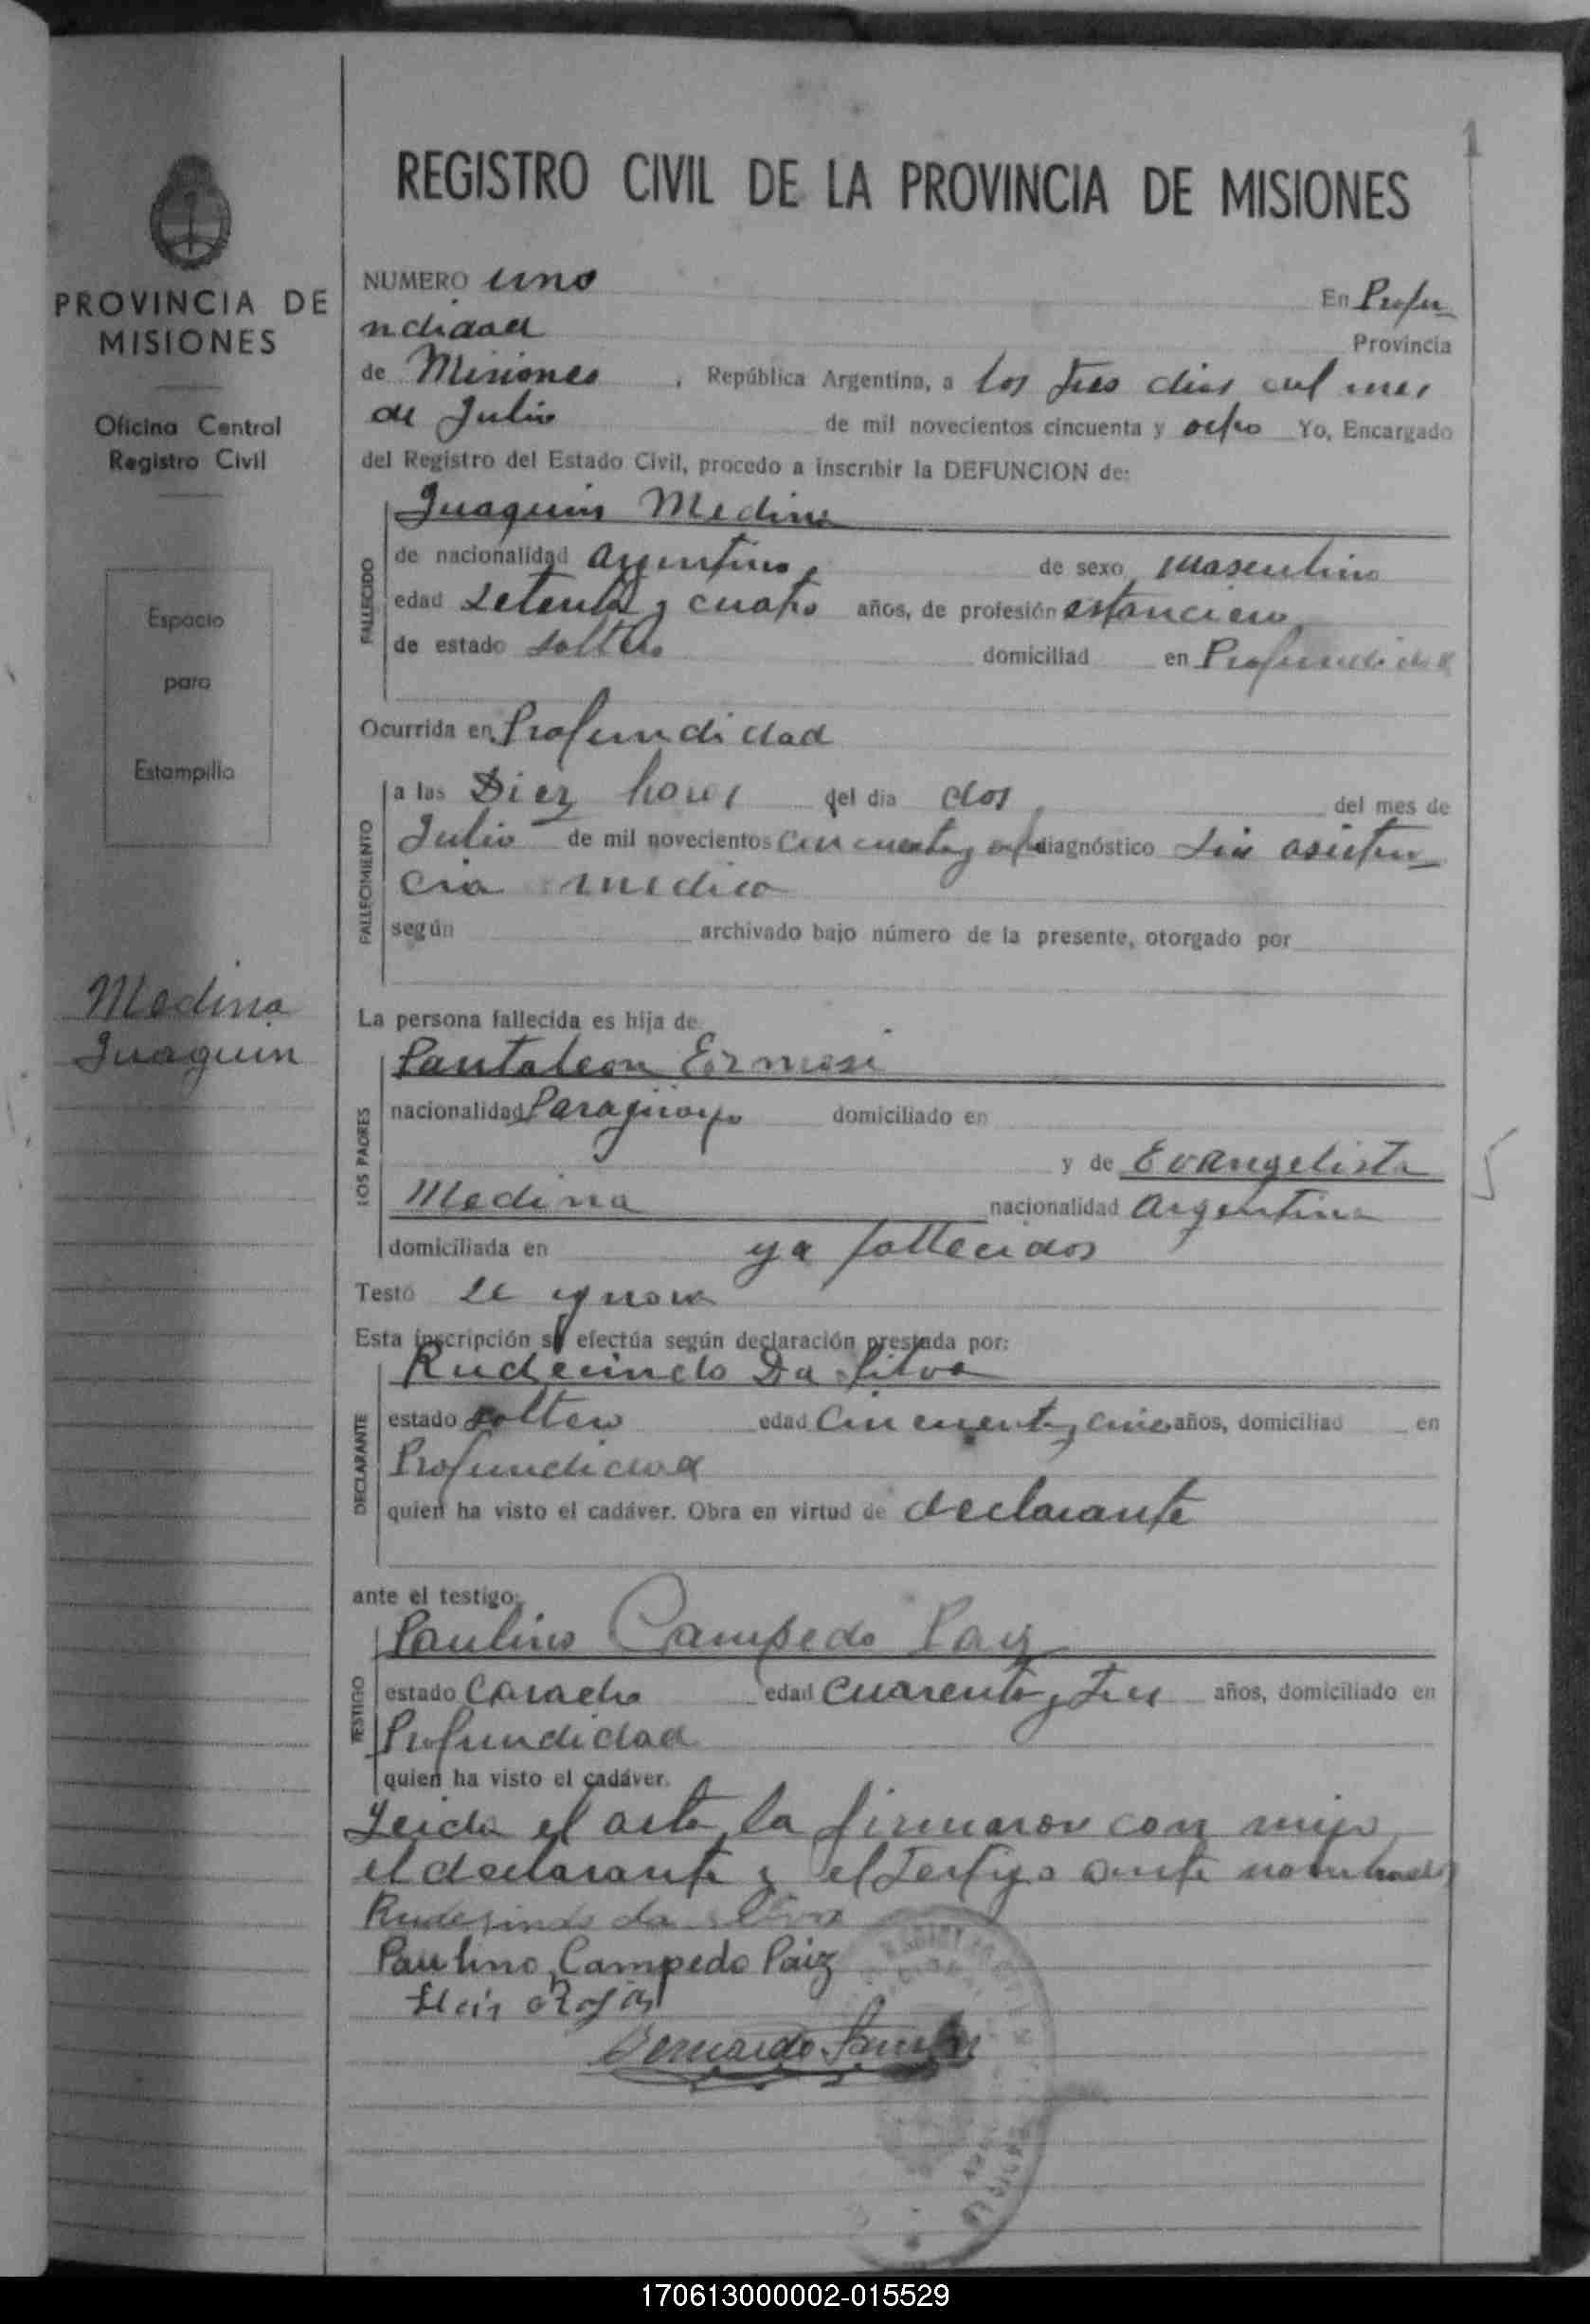 1
REGISTRO CIVIL DE LA PROVINCIA DE MISIONES
PROVINCIA DE
MISIONES
Oficina Central
Registro Civil
Espacio
para
Estampilla
Medina
Juaquin
NUMERO uno En Profu
ndidad Provincia
de Misiones, República Argentina, a los tres dias del mes
de Julio de mil novecientos cincuenta y ocho Yo, Encargado
del Registro del Estado Civil, procedo a inscribir la DEFUNCION de:
FALLECIDO
Juaquin Medina
de nacionalidad argentino, de sexo masculino
edad setenta y cuatro años, de profesión estanciero,
de estado soltero domiciliad en Profundidad
Ocurrida en Profundidad
FALLECIMIENTO
a las Diez horas del dia dos del mes de
Julio de mil novecientos cincuenta y ocho diagnóstico Sin asisten
cia medica
según archivado bajo número de la presente, otorgado por
La persona fallecida es hija de
LOS PADRES
Pantaleon Ermosi
nacionalidad Paraguayo domiciliado en
y de Evangelista
Medina nacionalidad argentina
domiciliada en ya fallecidos
5
Testó se ignora
Esta inscripción se efectúa según declaración prestada por:
DECLARANTE
Rudecindo Da Silva
estado soltero edad cincuenta y cinco años, domiciliad en
Profundidad
quien ha visto el cadáver. Obra en virtud de declarante
ante el testigo:
TESTIGO
Paulino Campedo Paiz
estado casado edad cuarenta y tres años, domiciliado en
Profundidad
quien ha visto el cadáver.
Leida el acta, la firmaron con migo
el declarante y el testigo ante nombrado
Rudesindo da silva
Paulino Campedo Paiz
Rojas
Bernardo
170613000002-015529